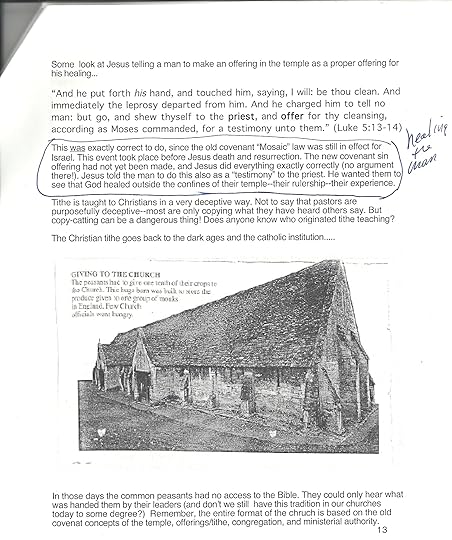 Some look at Jesus telling a man to make an offering in the temple as a proper offering for
his healing...
“And he put forth his hand, and touched him, saying, I will: be thou clean. And
immediately the leprosy departed from him. And he charged him to tell no
man: but go, and shew thyself to the priest, and offer for thy cleansing,
according as Moses commanded, for a testimony unto them.” (Luke 5:13-14)
healing
the
man
This was exactly correct to do, since the old covenant “Mosaic” law was still in effect for
Israel. This event took place before Jesus death and resurrection. The new covenant sin
offering had not yet been made, and Jesus did everything exactly correctly (no argument
there!). Jesus told the man to do this also as a “testimony” to the priest. He wanted them to
see that God healed outside the confines of their temple--their rulership--their experience.
Tithe is taught to Christians in a very deceptive way. Not to say that pastors are
purposefully deceptive--most are only copying what they have heard others say. But
copy-catting can be a dangerous thing! Does anyone know who originated tithe teaching?
The Christian tithe goes back to the dark ages and the catholic institution.....
GIVING TO THE CHURCH
The peasants had to give one tenth of their crops to
the Church. This huge barn was built to store the
produce given to one group of monks
in England. Few Church
officials went hungry.
In those days the common peasants had no access to the Bible. They could only hear what
was handed them by their leaders (and don't we still have this tradition in our churches
today to some degree?) Remember, the entire format of the chruch is based on the old
covenat concepts of the temple, offerings/tithe, congregation, and ministerial authority.
13